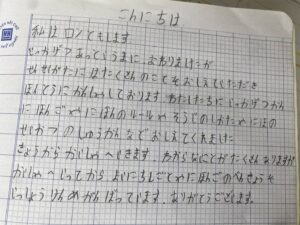 こんにちは
私は ロンともします
いっかげつあっとうまに、おわりましたが
せんせいがたに はたくさんのことをおしえていただき
ほんとうに かんしゃしております わたしたちに いっかげつかん
にほんごや にほんのルールや そうじのしかたや にほの
せいかつの しゅうかんなど おしえてくれました
きょうから かいしゃへいきます。わからないことがたくさんありますが
かいしゃへいってから よいにちしごとや にほんごの べんきょうを
いっしょうけんめ かんばっています。ありがとうございます。